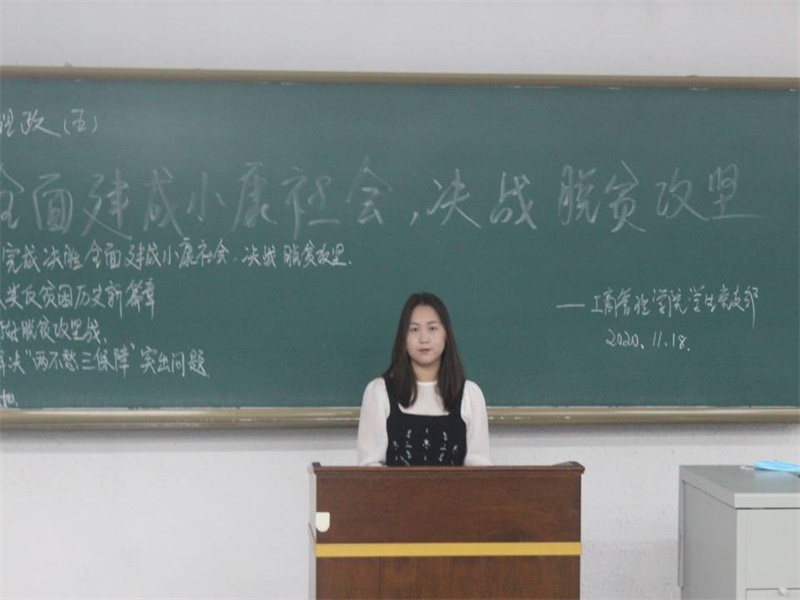 理政(五)
全面建成小康社会,决战脱贫攻坚
完成决胜全面建成小康社会,决战脱贫攻坚.
类反贫困历史新篇章
好脱贫攻坚战.
解决“两不愁三保障”突出问题
——工商管理学院学生党支部
2020.11.18.